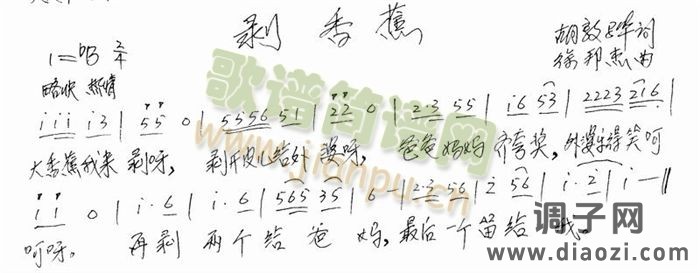 剥香蕉
1=♭B 2/4
胡敦骅词
徐邦杰曲
略快 热情
i i i i 3 | 5 5 0 | 5 5 5 6 5 1 | 2 2 0 | 2·3 5 5 | i 6 5 3 | 2 2 2 3 2 1 6 |
大香蕉我来剥呀，剥开皮儿给外婆呀，爸爸妈妈齐夸奖，外婆乐得笑呵
i i 0 | i· 6 | i· 6 | 5 6 5 3 5 | 6 — | 2·3 5 6 | 2 5 6 | i· 2 | i — ‖
呵呀。再剥两个给爸妈，最后一个留给我。
歌谱简谱网
www.jianpu.cn
调子网
www.diaozi.com